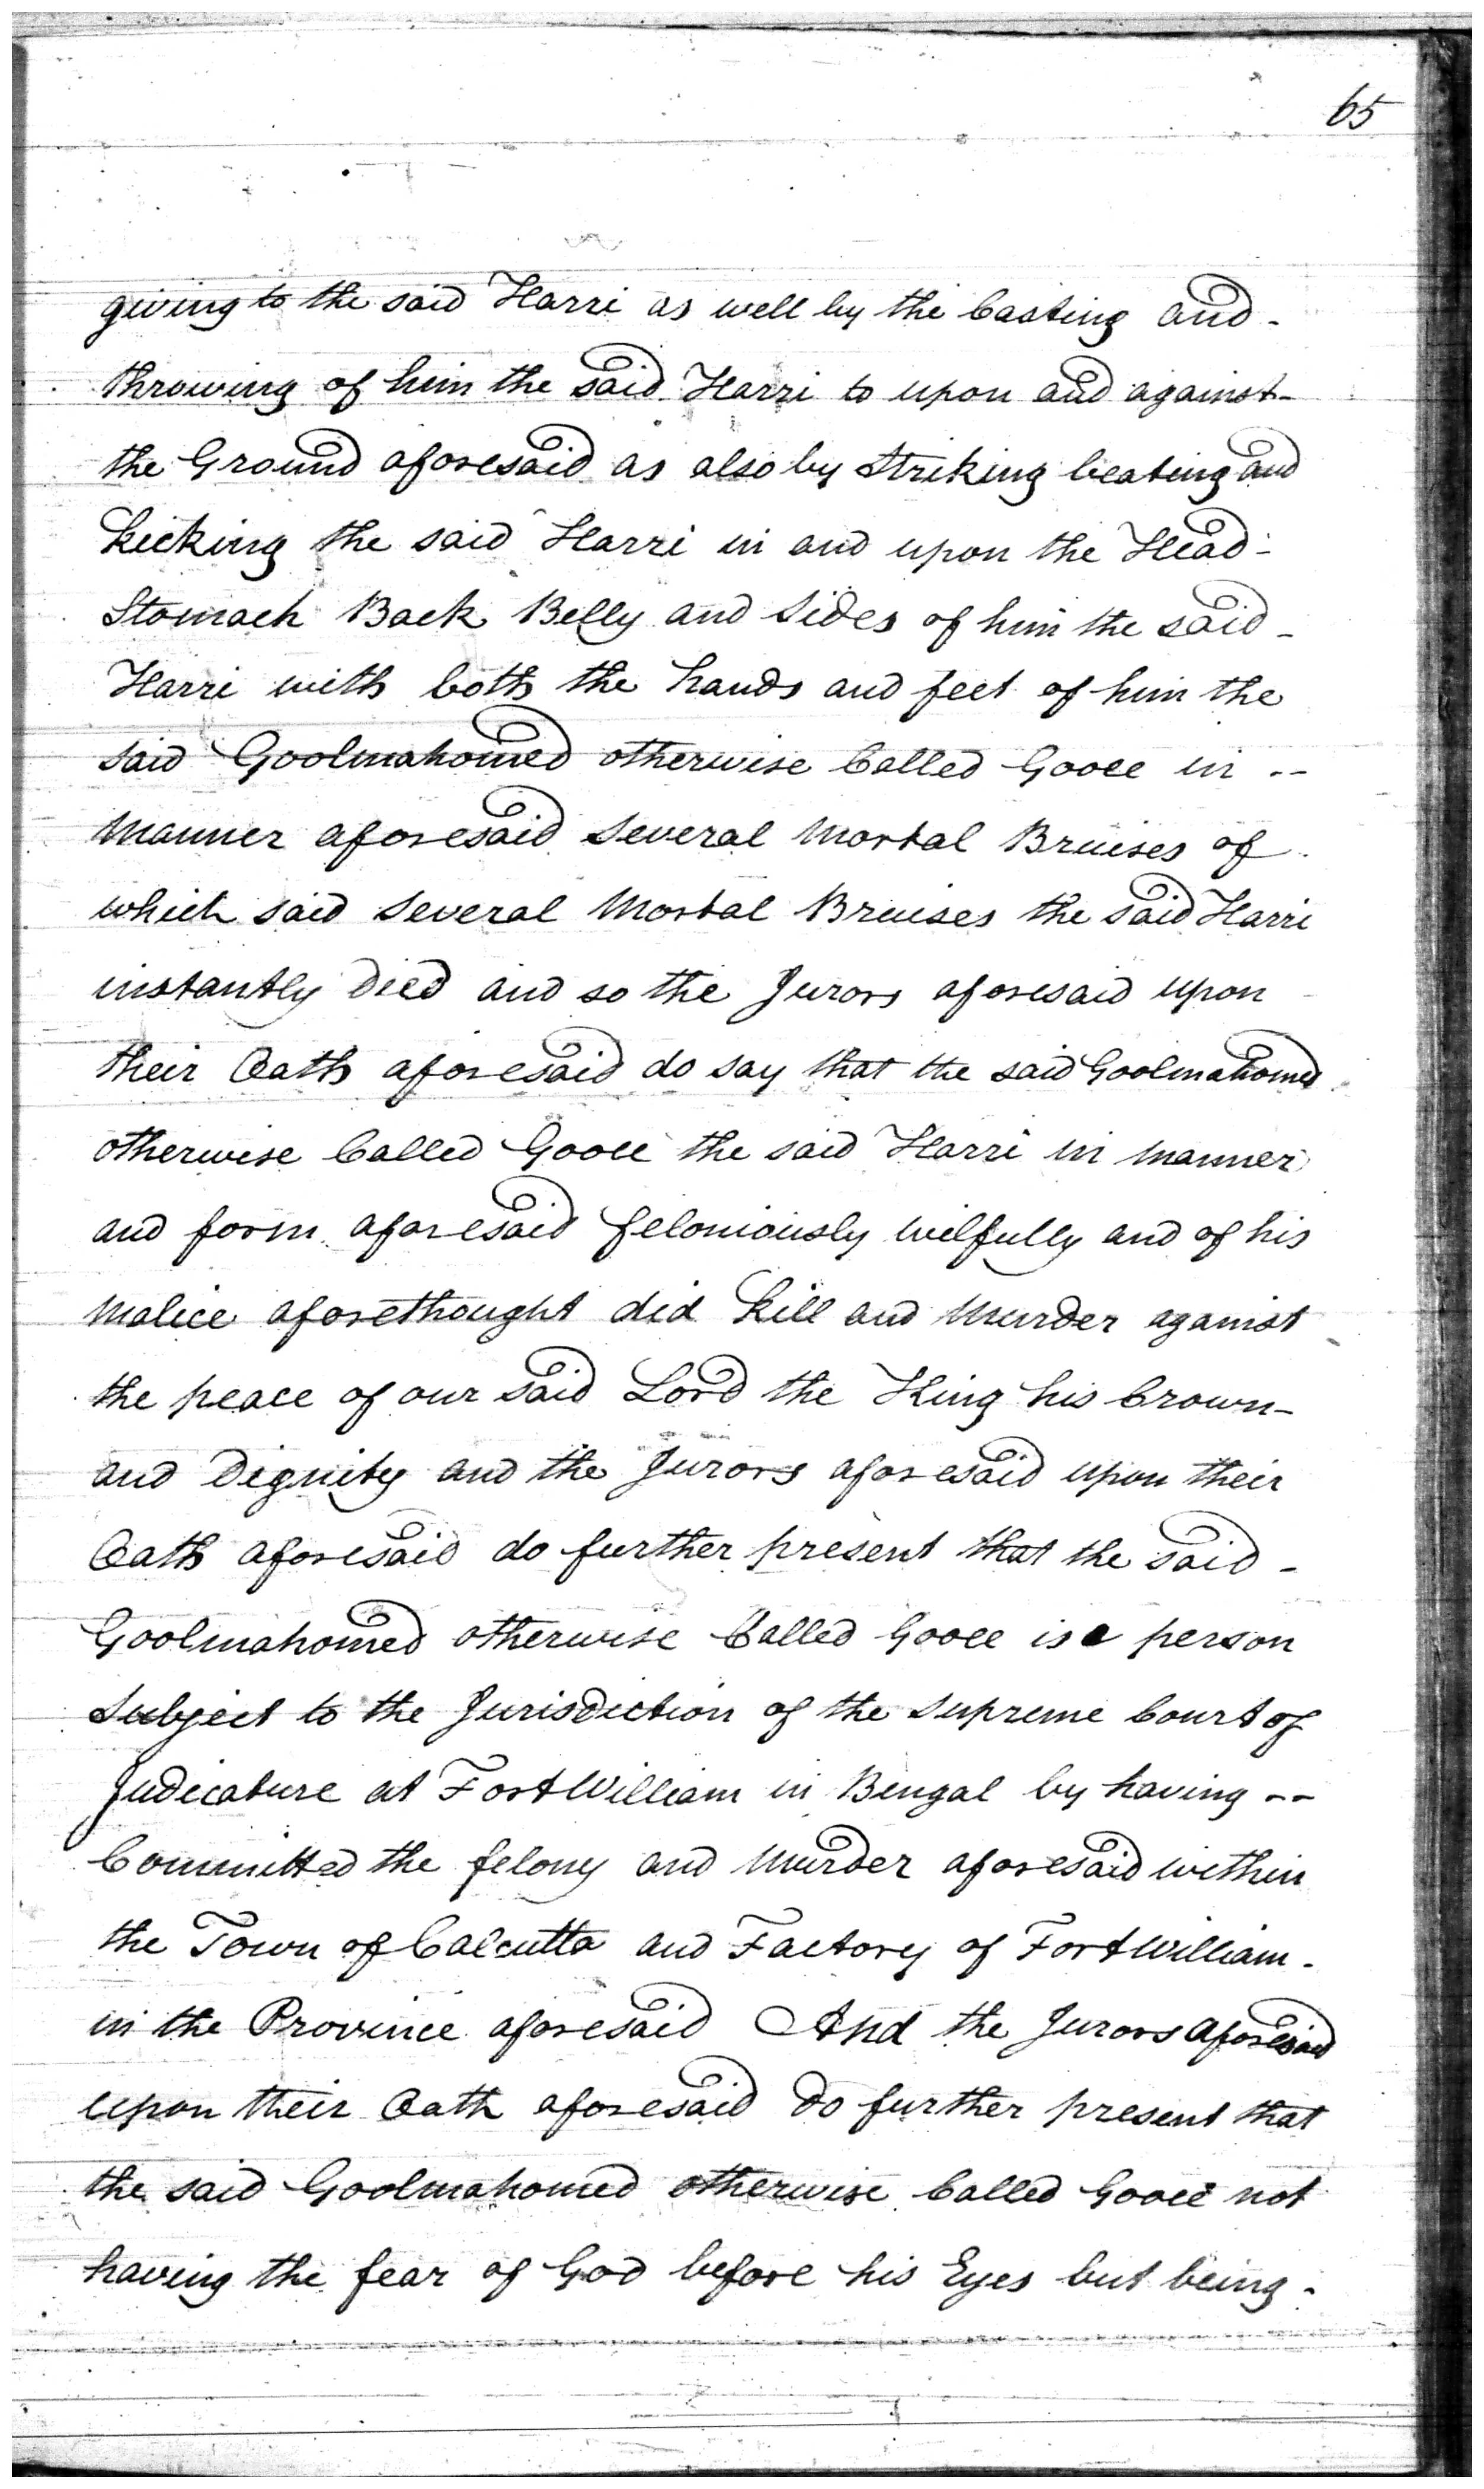 65
giving to the said Harri as well by the Casting and -
throwing of him the said Harri to upon and against -
the Ground aforesaid as also by Striking beating and
kicking the said Harri in and upon the Head -
Stomach Back Belly and Sides of him the said -
Harri with both the hands and feet of him the
said Goolmahomed otherwise Called Gooee in --
Manner aforesaid Several Mortal Bruises of
which said Several Mortal Bruises the said Harri
instantly Died and so the Jurors aforesaid upon
their Oath aforesaid do say that the said Goolmahomed
otherwise Called Gooee the said Harri in Manner
and form aforesaid feloniously wilfully and of his
Malice aforethought did kill and Murder against
the peace of our said Lord the King his Crown -
and Dignity and the Jurors aforesaid upon their
Oath aforesaid do further present that the said -
Goolmahomed otherwise Called Gooee is a person
Subject to the Jurisdiction of the Supreme Court of
Judicature at Fort William in Bengal by having --
Committed the felony and Murder aforesaid within
the Town of Calcutta and Factory of Fort William -
in the Province aforesaid And the Jurors aforesaid
upon their Oath aforesaid Do further present that
the said Goolmahomed otherwise Called Gooee not
having the fear of God before his Eyes but being -